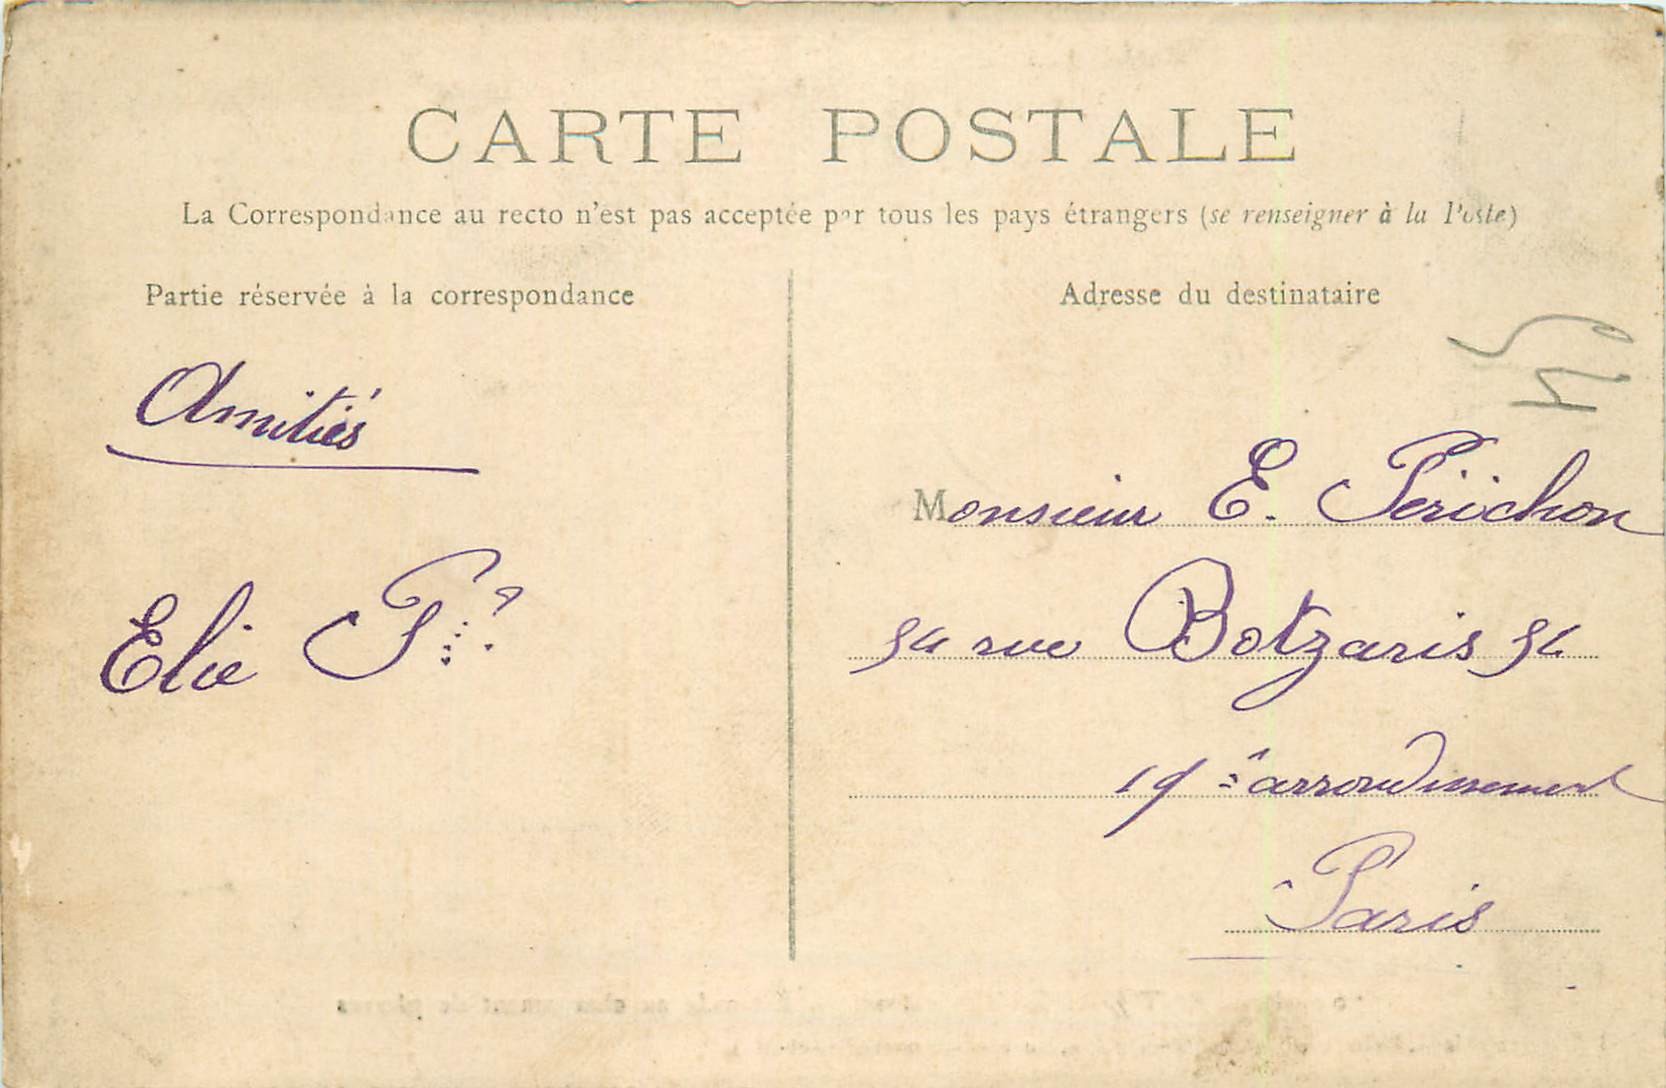 CARTE POSTALE
La Correspondance au recto n'est pas acceptée par tous les pays étrangers (se renseigner à la Poste)
Partie réservée à la correspondance
Adresse du destinataire
Amitiés
Elie P
Monsieur E. Périchon
54 rue Botzaris 54
19è arrondissement
Paris